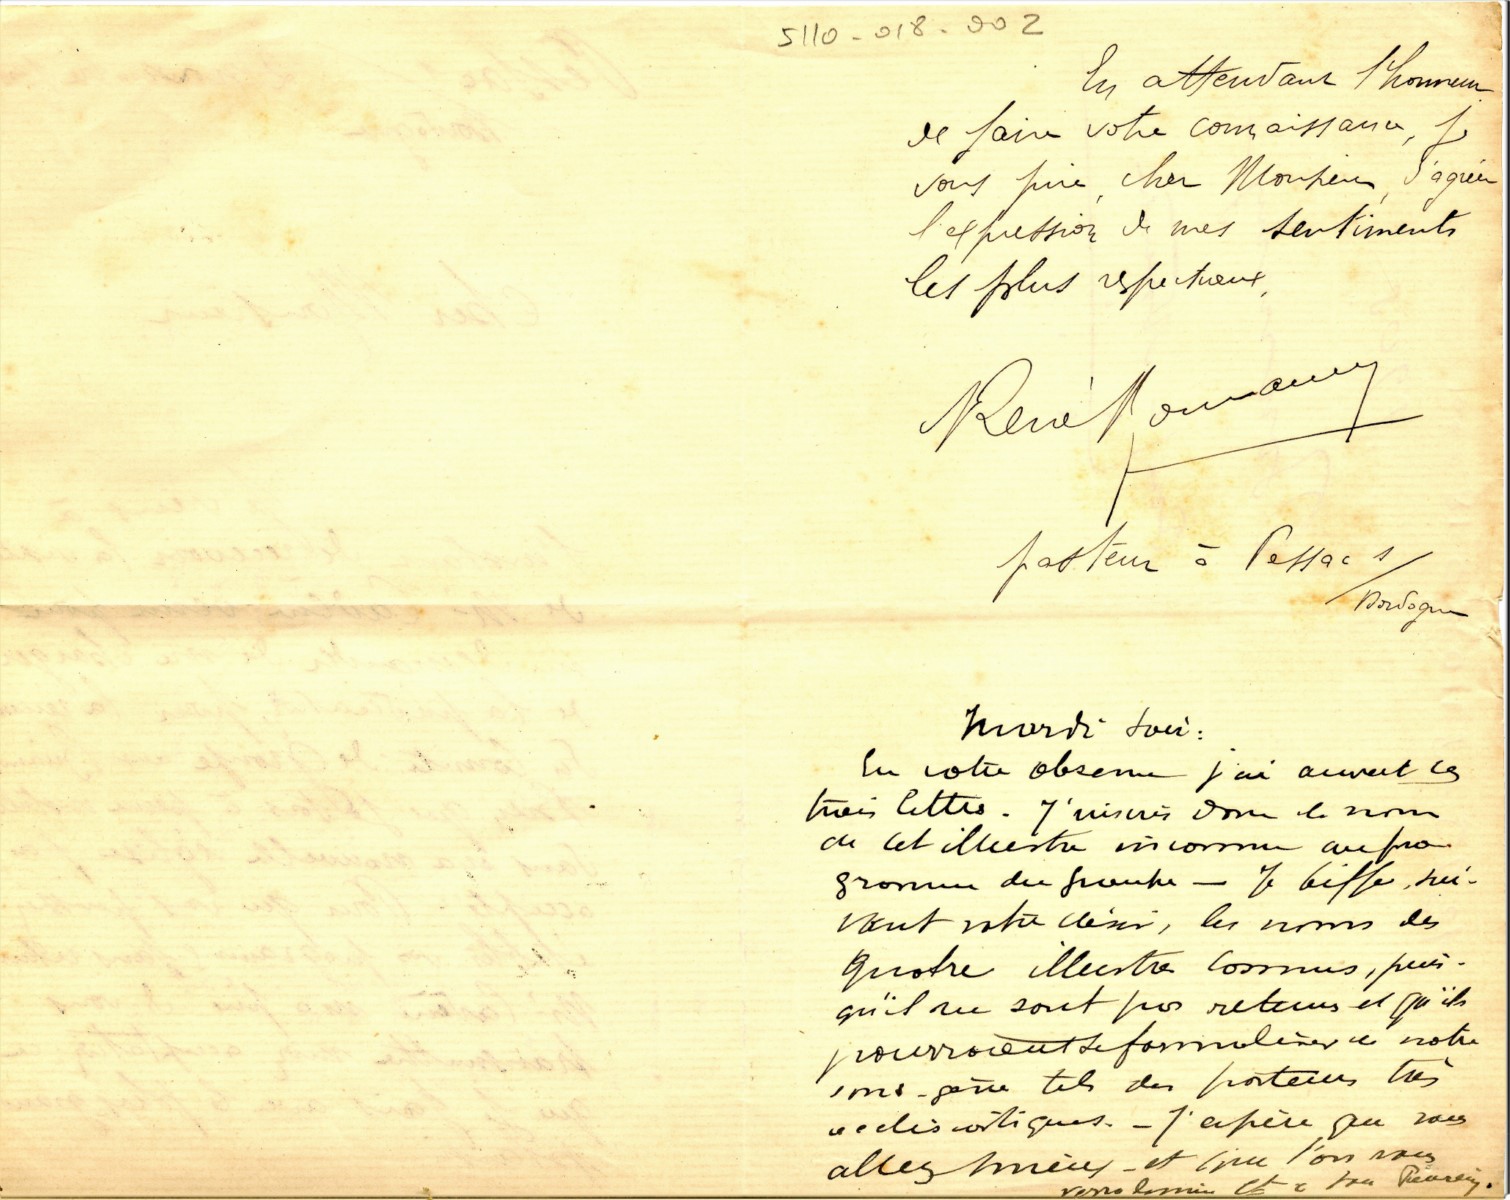 5110-018-002
En attendant l'honneur
de faire votre connaissance, je
vous prie, cher Monsieur, d'agréer
l'expression de mes sentiments
les plus respectueux,
René
pasteur à Pessac s/
Dordogne
Mardi soir:
En votre absence j'ai ouvert ces
trois lettres. J'inscris donc le nom
de cet illustre inconnu au pro-
gramme du groupe — Je biffe, sui-
vant votre désir, les noms des
quatre illustres connus, puis-
qu'il ne sont pas retenus et qu'ils
pourraient se formaliser de notre
sans-gêne tels des pasteurs très
ecclésiastiques. — J'espère que vous
allez mieux — et que l'on vous
verra demain et à